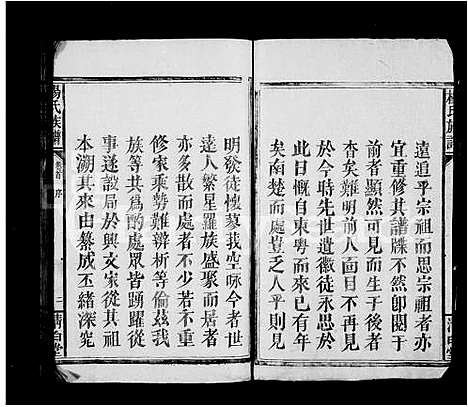 遠追乎宗祖而思宗祖者
宜重修其譜牒不然卽閱于
前者顯然可見而生于後者
杳矣難明前人面目不再見
於今時先世遺徽徒永思於
此日昔東粤處此來已有年
矣南楚而居處
明發徒懷慕我空咏今者世
遠人繁星羅族盛聚而居者
亦多散而處者不少若不重
修家乘勢難辨析等倫茲我
族等共爲酌處眾皆踴躍從
事遂設局於興文家從其祖
本溯其來由纂成丕緒深究
楊氏族譜
卷首 序
二
清白堂